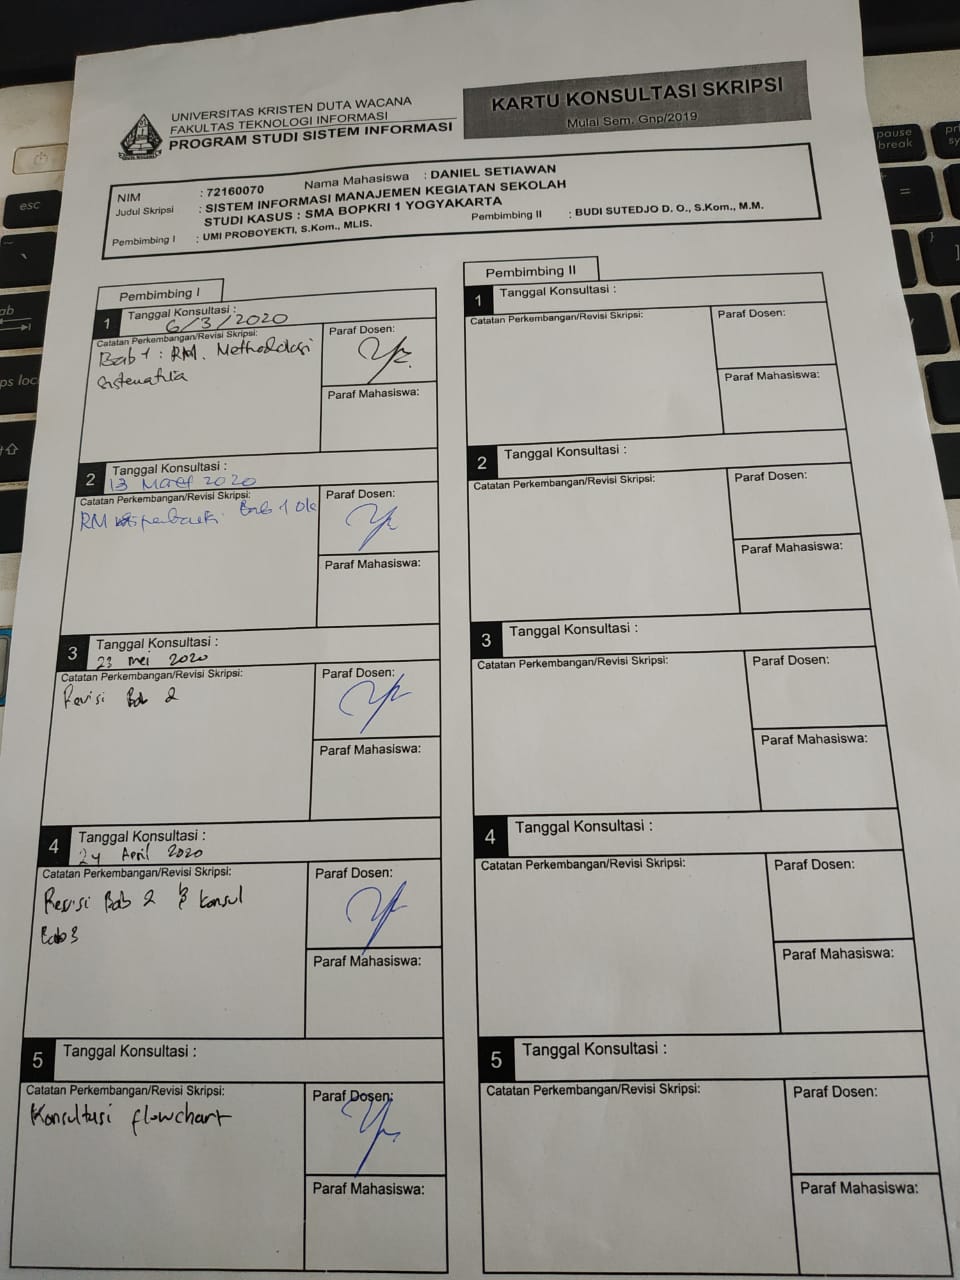 UNIVERSITAS KRISTEN DUTA WACANA
FAKULTAS TEKNOLOGI INFORMASI
PROGRAM STUDI SISTEM INFORMASI
KARTU KONSULTASI SKRIPSI
Mulai Sem. Gnp/2019
NIM : 72160070 Nama Mahasiswa : DANIEL SETIAWAN
Judul Skripsi : SISTEM INFORMASI MANAJEMEN KEGIATAN SEKOLAH
STUDI KASUS : SMA BOPKRI 1 YOGYAKARTA
Pembimbing I : UMI PROBOYEKTI, S.Kom., MLIS. Pembimbing II : BUDI SUTEDJO D. O., S.Kom., M.M.
Pembimbing I
1 Tanggal Konsultasi :
6/3/2020
Catatan Perkembangan/Revisi Skripsi:
Paraf Dosen:
Bab 1 : RM. Methodologi
Sistematika
Paraf Mahasiswa:
2 Tanggal Konsultasi :
13 Maret 2020
Catatan Perkembangan/Revisi Skripsi:
Paraf Dosen:
RM Bab 1 ok
Paraf Mahasiswa:
3 Tanggal Konsultasi :
23 mei 2020
Catatan Perkembangan/Revisi Skripsi:
Paraf Dosen:
Revisi Bab 2
Paraf Mahasiswa:
4 Tanggal Konsultasi :
24 April 2020
Catatan Perkembangan/Revisi Skripsi:
Paraf Dosen:
Revisi Bab 2 & konsul
Bab 3
Paraf Mahasiswa:
5 Tanggal Konsultasi :
Catatan Perkembangan/Revisi Skripsi:
Paraf Dosen:
Konsultasi flowchart
Paraf Mahasiswa:
Pembimbing II
1 Tanggal Konsultasi :
Catatan Perkembangan/Revisi Skripsi:
Paraf Dosen:
Paraf Mahasiswa:
2 Tanggal Konsultasi :
Catatan Perkembangan/Revisi Skripsi:
Paraf Dosen:
Paraf Mahasiswa:
3 Tanggal Konsultasi :
Catatan Perkembangan/Revisi Skripsi:
Paraf Dosen:
Paraf Mahasiswa:
4 Tanggal Konsultasi :
Catatan Perkembangan/Revisi Skripsi:
Paraf Dosen:
Paraf Mahasiswa:
5 Tanggal Konsultasi :
Catatan Perkembangan/Revisi Skripsi:
Paraf Dosen:
Paraf Mahasiswa:
esc
pause
break